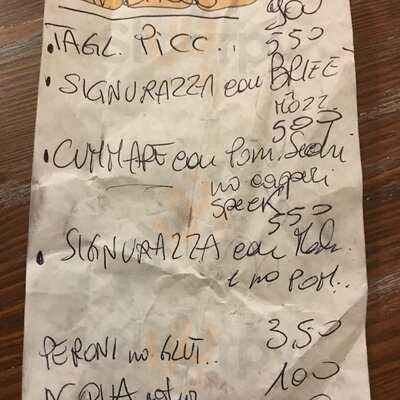 TAGL. PICC.. 550
• SIGNURAZZA con BRIEE
MOZZ.
500
• CUMMARE con Pom. Secchi
no capperi
SPECK
550
• SIGNURAZZA con
e no POM..
PERONI no GLUT.. 350
100